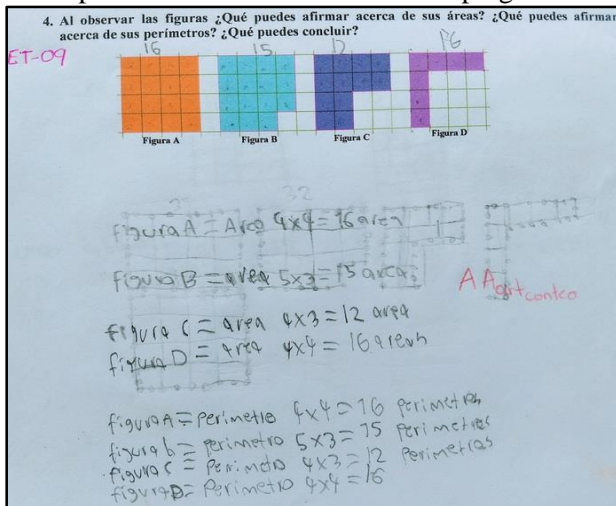 4. Al observar las figuras ¿Qué puedes afirmar acerca de sus áreas? ¿Qué puedes afirmar
acerca de sus perímetros? ¿Qué puedes concluir?
ET-09
16 15 12 16
Figura A Figura B Figura C Figura D
32
figura A = Area 4x4 = 16 area
figura B = area 5x3 = 15 area
A A
conteo
figura C = area 4x3 = 12 area
figura D = area 4x4 = 16 area
figura A = perimetro 4x4 = 16 perimetros
figura b = perimetro 5x3 = 15 perimetros
figura c = perimetro 4x3 = 12 perimetros
figura D = perimetro 4x4 = 16